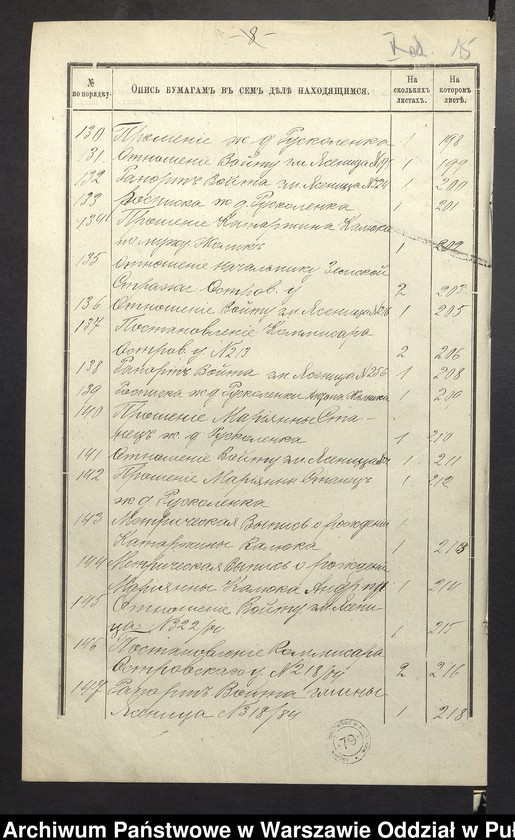 8
15
№ по порядку.
Опись бумагамъ въ семъ дѣлѣ находящимся.
На сколькихъ листахъ.
На которомъ листѣ.
130 Прошеніе ж. д Русколенка 1 198
131 Отношеніе Войту гм. Ясеница 1 199
132 Рапортъ Войта гм Ясеница №224 1 200
133 Росписка ж д. Русколенка 1 201
134 Прошеніе Катаржина Калюка
по мужу 1 202
135 Отношеніе Начальнику Земской
Стражи Остров. у 2 203
136 Отношеніе Войту гм. Ясеница 1 205
137 Постановленіе Коммисара
Остров. у №213 2 206
138 Рапортъ Войта гм. Ясеница №256 1 208
139 Росписка ж д Русколенки 1 209
140 Прошеніе Маріянны Ста-
нецъ ж. д Русколенка 1 210
141 Отношеніе Войту гм. Ясеница 1 211
142 Прошеніе Маріянны Станецъ 1 212
ж д. Русколенка
143 Метрическая Выпись о рождени 1
Катаржины Калюка 1 213
144 Метрическая Выпись о рождени
Маріянны Калюка 1 214
145 Отношеніе Войту гм Ясени-
ца №322/84 1 215
146 Постановленіе Коммисара
Островскаго у №218/84 2 216
147 Рапортъ Войта гмины
Ясеница №318/84 1 218
79
Archiwum Państwowe w Warszawie Oddział w Puł